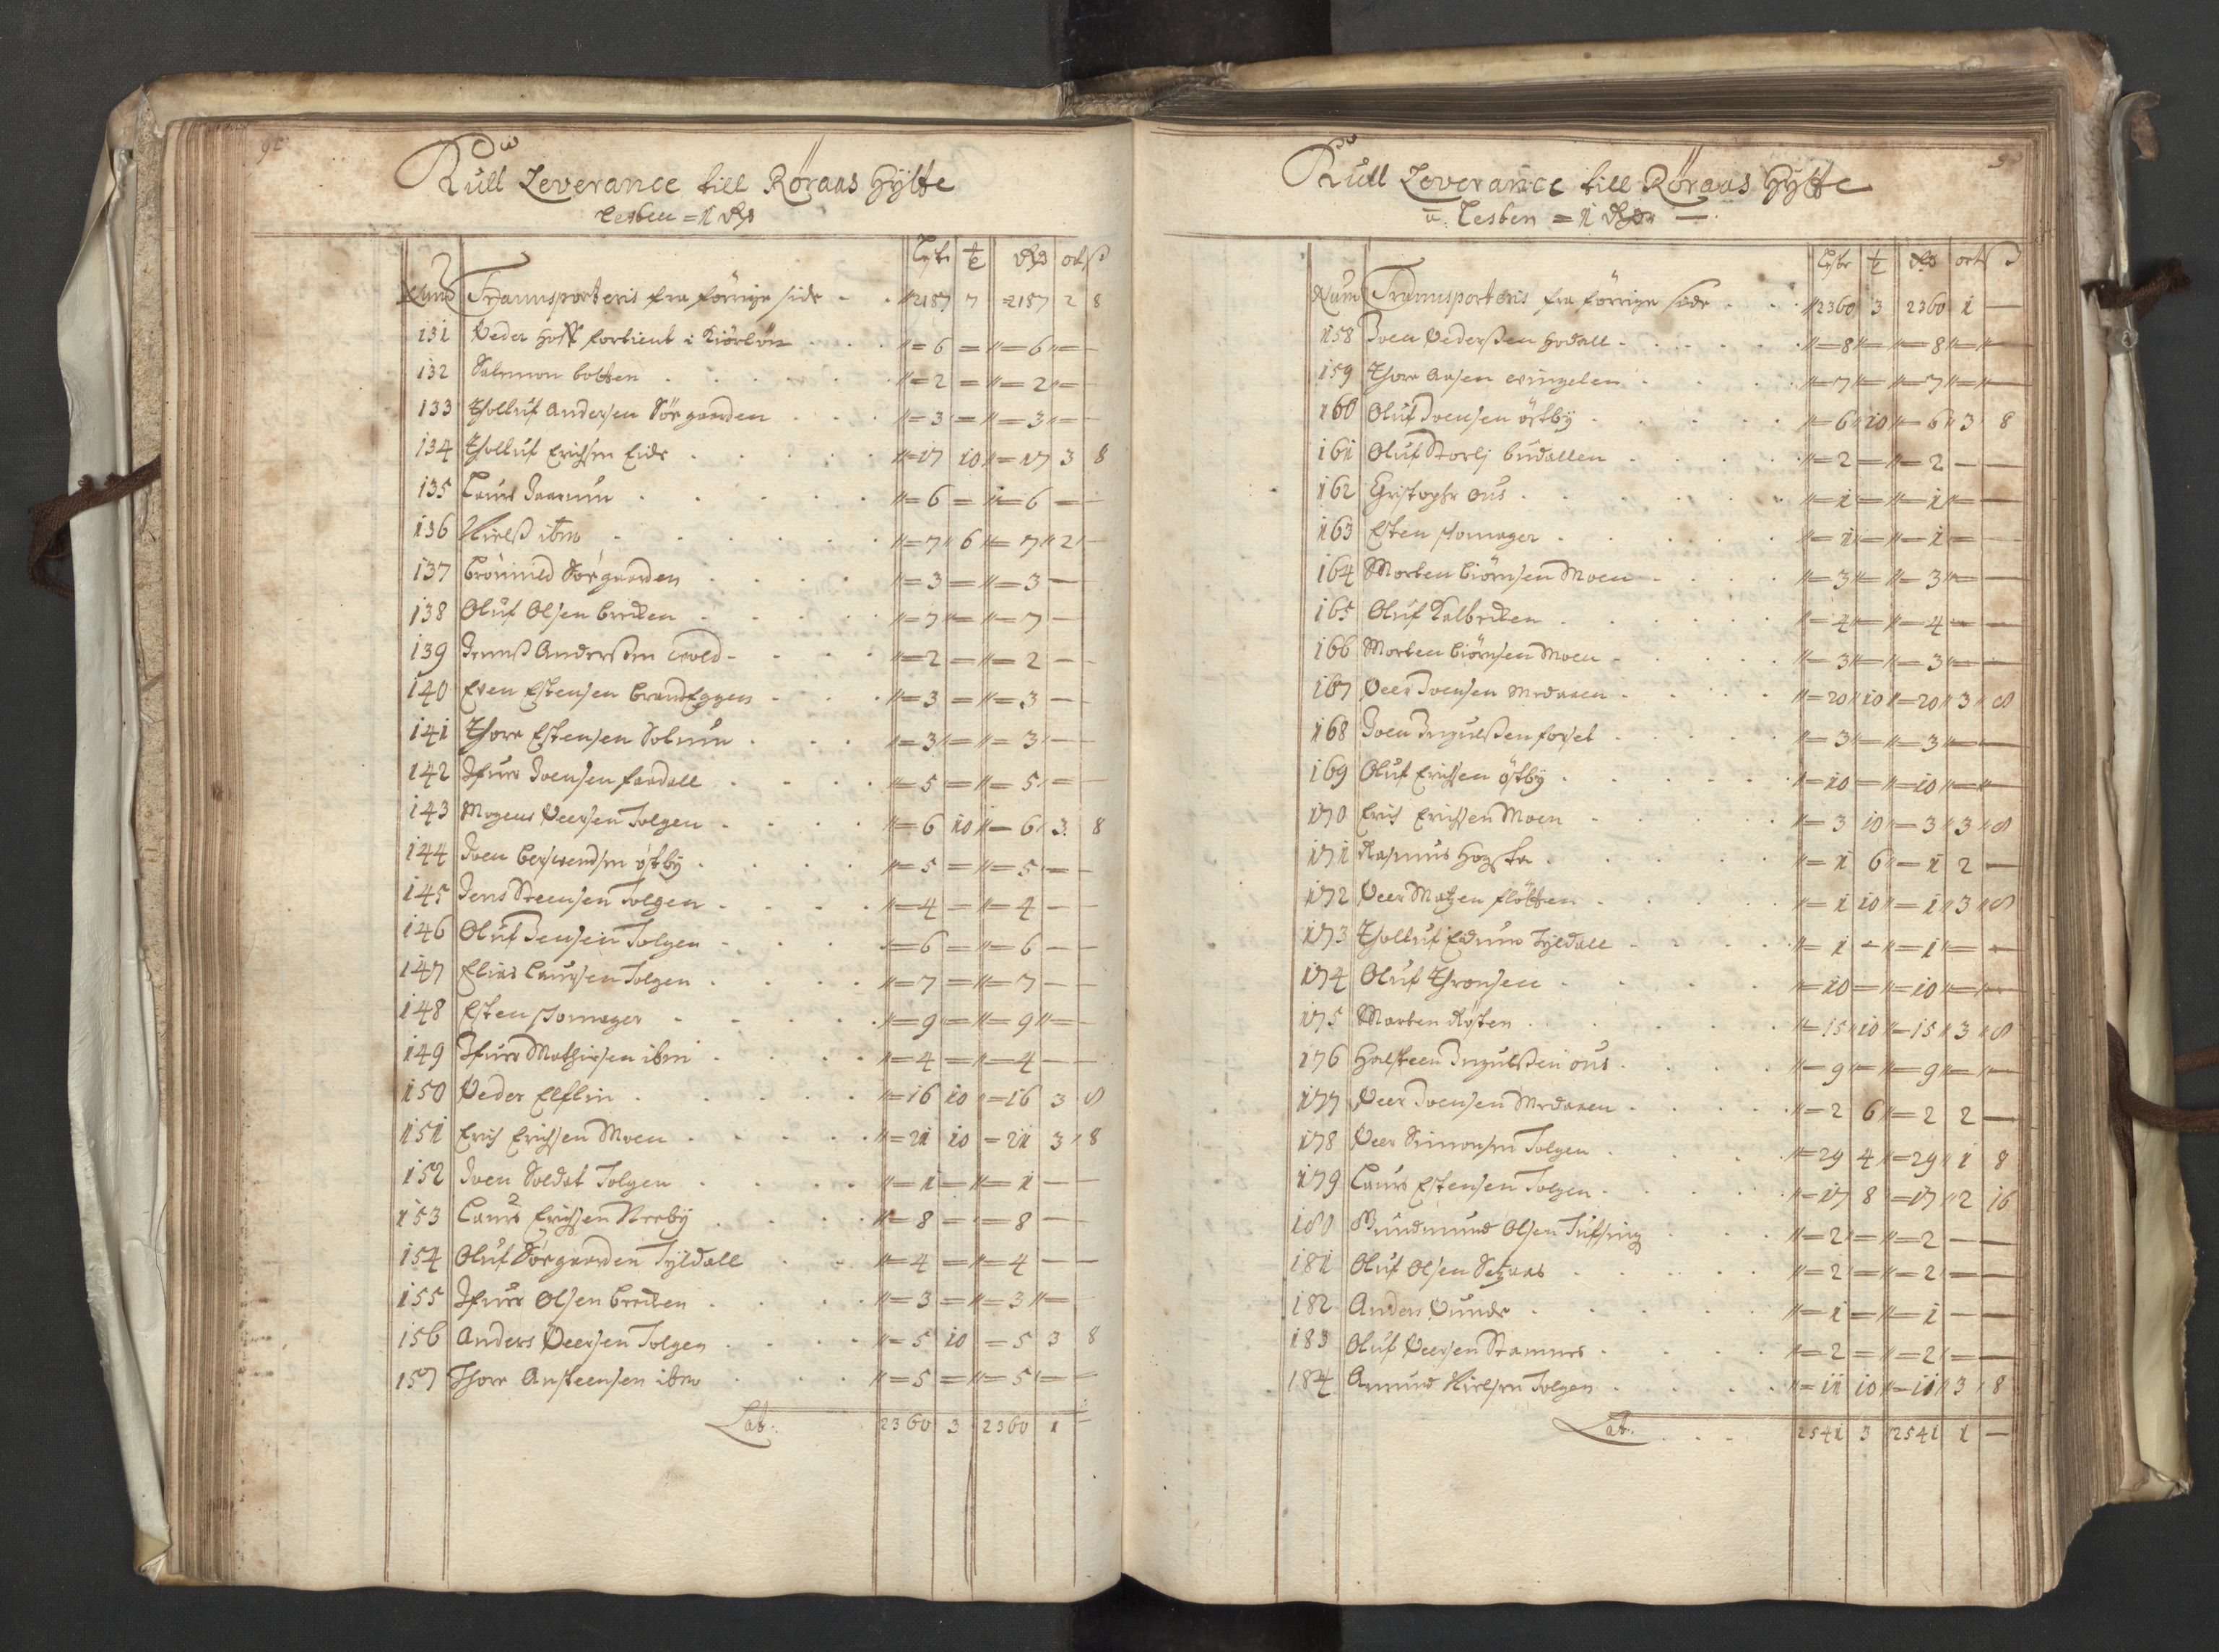 Kull Leverance till Röraas Hÿtte
Lesten = 1 Rd
Lester t Rd ort s
Num Transporteris fra forrige side 2187 7 2187 2 8
131 Peder Hoff fortient i = 6 = = 6 = –
132 Salemon botten = 2 = = 2 = –
133 Tholluf Andersen Sörgaarden = 3 = = 3 = –
134 Tholluf Erichsen Eide = 17 10 = 17 3 8
135 Laurs = 6 = = 6 – –
136 Nielß ibm = 7 6 = 7 2 –
137 Brönnild Sörgaarden = 3 = = 3 –
138 Oluf Olsen Brecken = 7 = = 7 –
139 Jennß Anderßen = 2 = = 2 – –
140 Even Estensen BrendEggen = 3 = = 3 –
141 Thore Estensen Solum = 3 = = 3 – –
142 Ifuer Joensen faadall = 5 = = 5 = –
143 Mogens Peersen Tolgen = 6 10 = 6 3 8
144 Joen Berswendsen östbÿ = 5 = = 5 = –
145 Jens Steensen Tolgen = 4 = = 4 – –
146 Oluf Jensen Tolgen = 6 = = 6 – –
147 Elias Laursen Tolgen = 7 = = 7 – –
148 Esten Jomager = 9 = = 9 = –
149 Ifuer Mathisen ibm = 4 = = 4 – –
150 Peder Elflin = 16 10 = 16 3 8
151 Erich Erichsen Moen = 21 10 = 21 3 8
152 Joen Soldat Tolgen = 1 = = 1 – –
153 Laurs Erichsen Neebÿ = 8 – = 8 – –
154 Oluf Sörgaarden Tÿldall = 4 = = 4 – –
155 Ifuer Olsen Brecken = 3 = = 3 = –
156 Anders Peersen Tolgen = 5 10 = 5 3 8
157 Thore Ansteensen ibm = 5 = = 5 = =
Lat: 2360 3 2360 1 =
Kull Leverance till Röraas Hÿtte
a Lesten = 1 Rdr
Lester t Rd ort s
Num Transporteris fra forrige side 2360 3 2360 1 –
158 Joen Pederßen Hodall = 8 = = 8 = –
159 Thore Aasen evingelen = 7 = = 7 = –
160 Oluf Joensen östbÿ = 6 10 = 6 3 8
161 Oluf Storli budallen = 2 = = 2 – –
162 Christopher ous = 1 = = 1 = –
163 Esten Jomager = 1 = = 1 = –
164 Morten Biörnsen Moen = 3 = = 3 = –
165 Oluf Kalbecken = 4 = = 4 = –
166 Morten Biörnsen Moen = 3 = = 3 = –
167 Peer Joensen Medaaen = 20 10 = 20 3 8
168 Joen Ingulßen forset = 3 = = 3 – –
169 Oluf Erichsen östbÿ = 10 = = 10 = –
170 Erich Erichsen Moen = 3 10 = 3 3 8
171 Rasmus = 1 6 = 1 2 –
172 Peer Matzen flötten = 1 10 = 1 3 8
173 Tholluf Tÿldall = 1 = = 1 = –
174 Oluf Thronsen = 10 = = 10 = –
175 Morten Rösten = 15 10 = 15 3 8
176 Halsteen Ingulßen ous = 9 = = 9 = –
177 Peer Joensen Medaaen = 2 6 = 2 2 –
178 Peer Simonsen Tolgen = 29 4 = 29 1 8
179 Laurs Estensen Tolgen = 17 8 = 17 2 16
180 Gundmund Olsen Tufsing = 2 = = 2 – –
181 Oluf Olsen Setzaas = 2 = = 2 – –
182 Anders Punde = 1 = = 1 – –
183 Oluf Peersen Stammes = 2 = = 2 – –
184 Amund Nielsen Tolgen = 11 10 = 11 3 8
Lat: 2541 3 2541 1 –